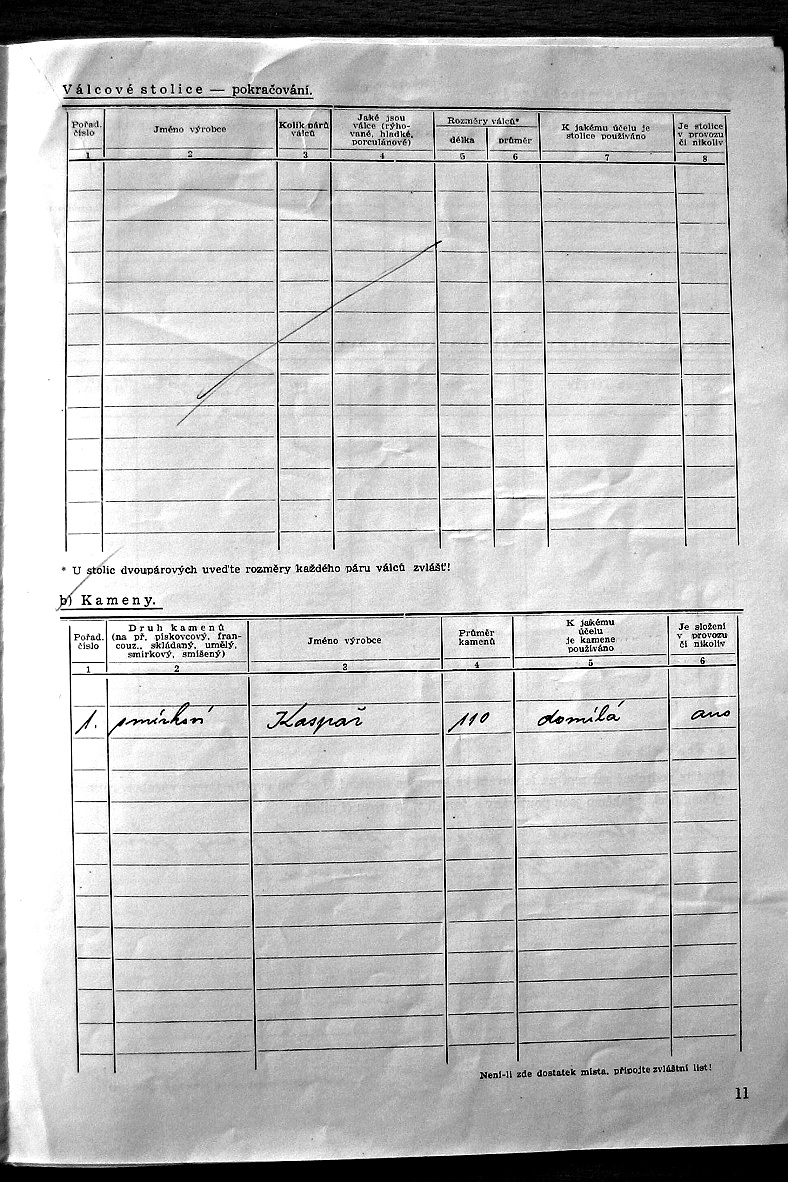 Válcové stolice — pokračování.
Pořad. číslo
Jméno výrobce
Kolik párů válců
Jaké jsou válce (rýho-
vané, hladké,
porculánové)
Rozměry válců*
délka
průměr
K jakému účelu je
stolice používáno
Je stolice
v provozu
či nikoliv
1 2 3 4 5 6 7 8
* U stolic dvoupárových uveďte rozměry každého páru válců zvlášť!
b) Kameny.
Pořad. číslo
Druh kamenů
(na př. pískovcový, fran-
couz., skládaný, umělý,
smirkový, smíšený)
Jméno výrobce
Průměr
kamenů
K jakému
účelu
je kamene
používáno
Je složení
v provozu
či nikoliv
1 2 3 4 5 6
1. smírkoví Kaspař 110 domílá ano
Není-li zde dostatek místa, připojte zvláštní list!
11